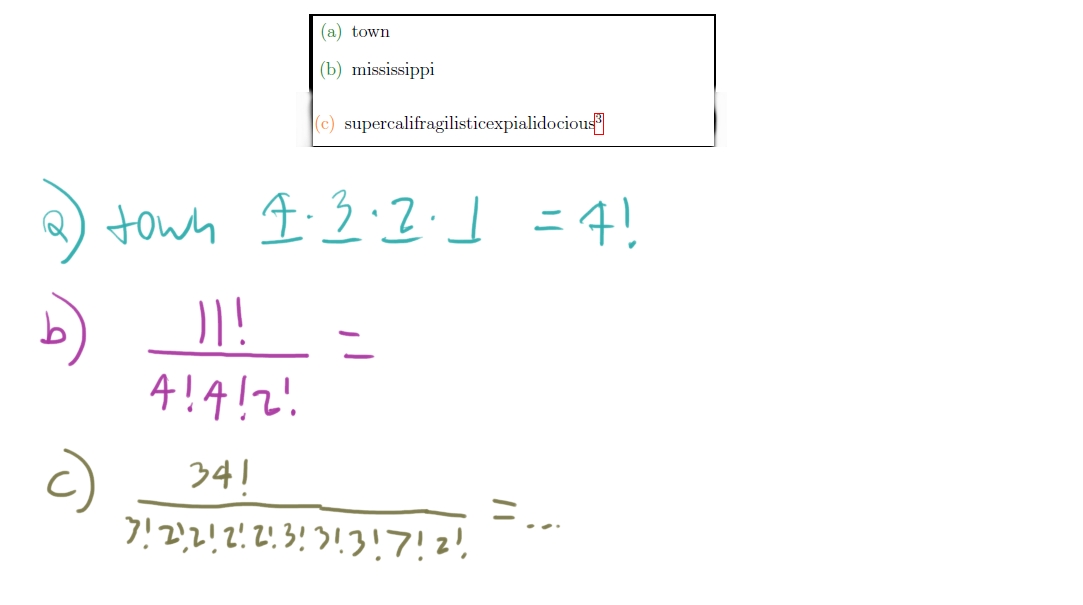 (a) town
(b) mississippi
(c) supercalifragilisticexpialidocious³
a) town 4 · 3 · 2 · 1 = 4!
b) 11! / 4! 4! 2! =
c) 34! / 3! 2! 2! 2! 2! 3! 3! 3! 7! 2! = ...